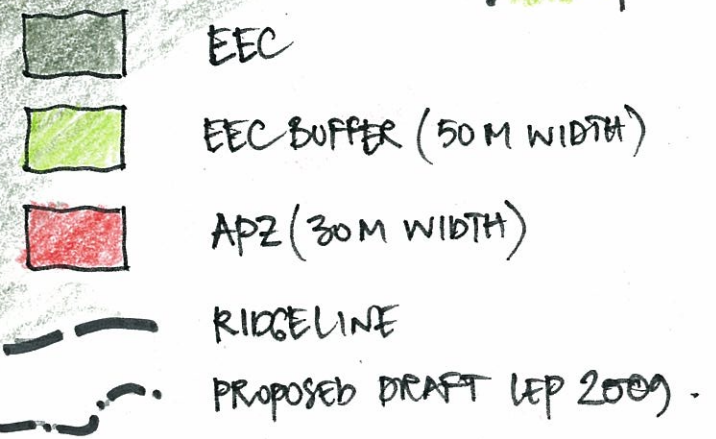 EEC
EEC BUFFER (50 M WIDTH)
APZ (30 M WIDTH)
RIDGELINE
PROPOSED DRAFT LEP 2009.